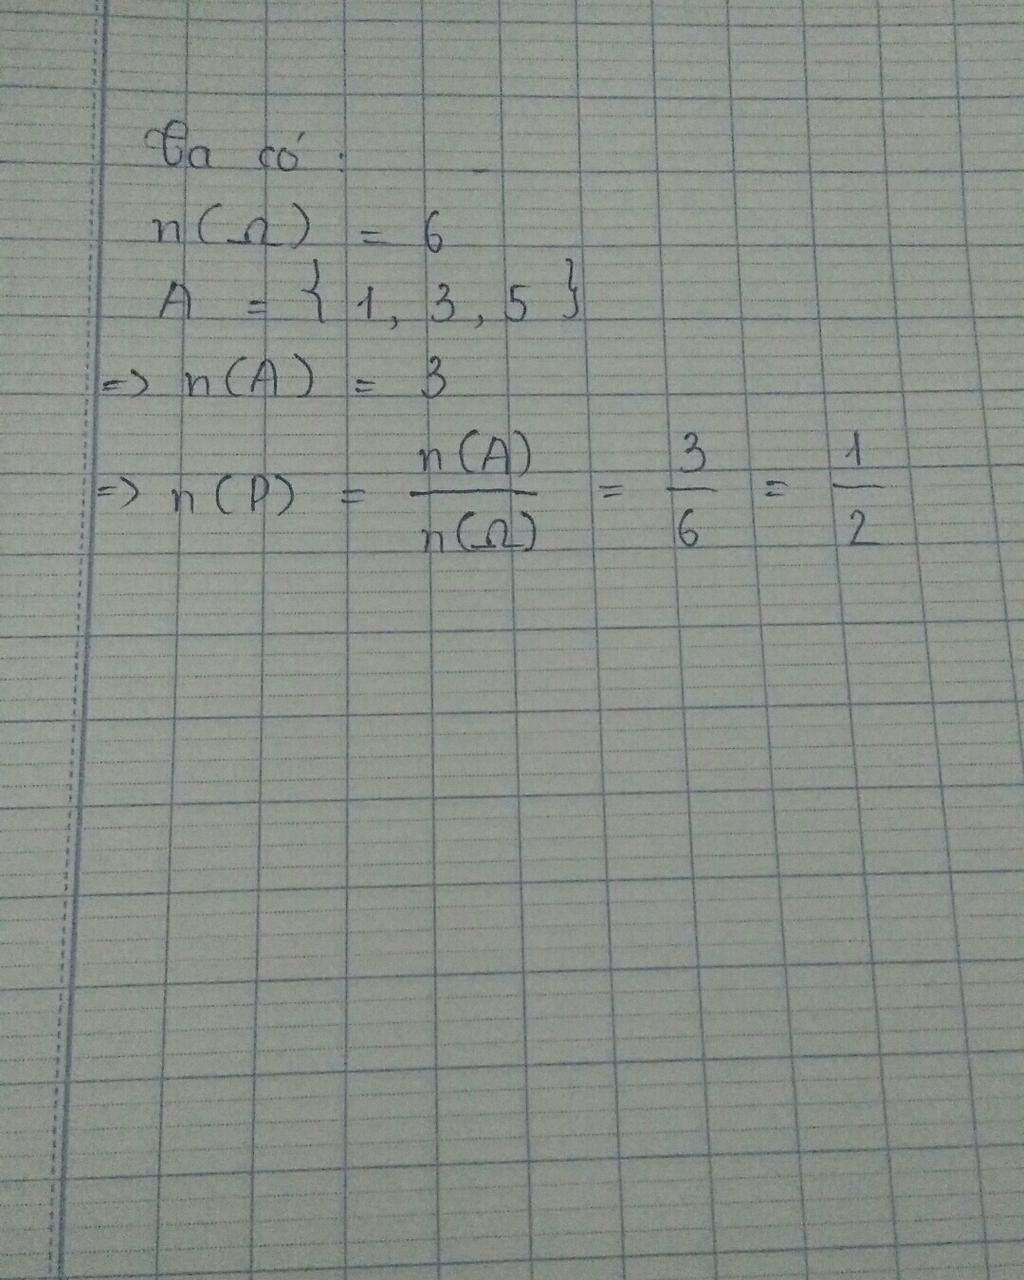 Ta có :
n(Ω) = 6
A = { 1, 3, 5 }
=> n(A) = 3
=> n(P) = n(A)/n(Ω) = 3/6 = 1/2